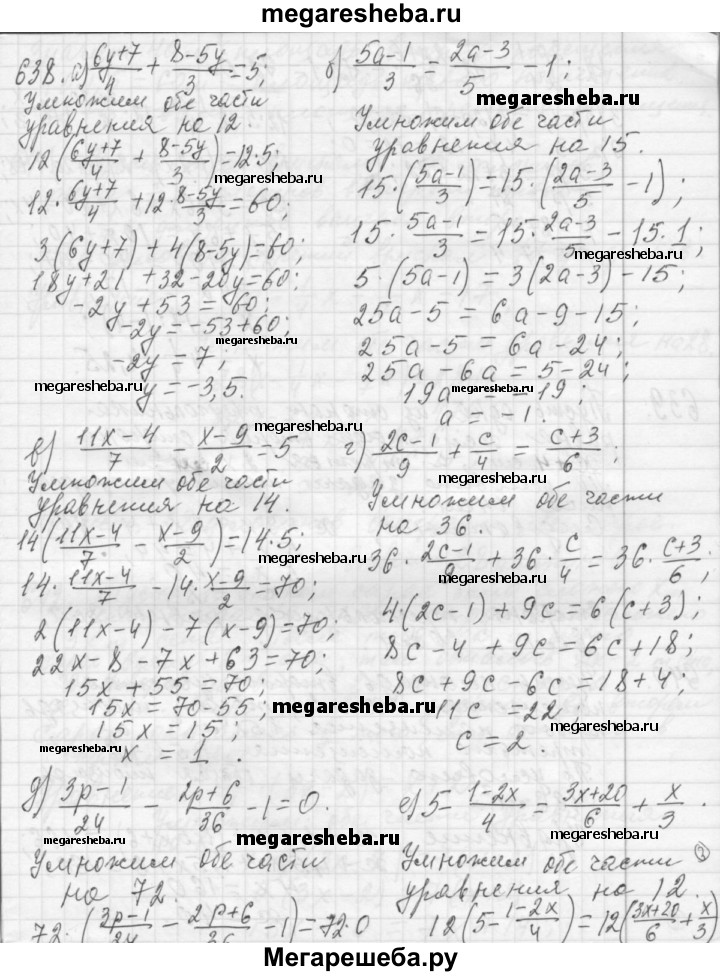 megaresheba.ru
638. а) (6y+7)/4 + (8-5y)/3 = 5;
Умножим обе части
уравнения на 12.
12((6y+7)/4 + (8-5y)/3) = 12·5;
megaresheba.ru
12·(6y+7)/4 + 12·(8-5y)/3 = 60;
3(6y+7) + 4(8-5y) = 60;
18y+21 + 32-20y = 60;
-2y + 53 = 60;
-2y = -53+60;
-2y = 7;
megaresheba.ru
y = -3,5.
б) (5a-1)/3 = (2a-3)/5 - 1;
megaresheba.ru
Умножим обе части
уравнения на 15.
15·((5a-1)/3) = 15·((2a-3)/5 - 1);
15·(5a-1)/3 = 15·(2a-3)/5 - 15·1;
megaresheba.ru
5·(5a-1) = 3(2a-3) - 15;
25a-5 = 6a-9-15;
25a-5 = 6a-24;
25a-6a = 5-24;
19a = -19;
megaresheba.ru
a = -1.
639.
в) (11x-4)/7 - (x-9)/2 = 5
megaresheba.ru
Умножим обе части
уравнения на 14.
14((11x-4)/7 - (x-9)/2) = 14·5;
megaresheba.ru
14·(11x-4)/7 - 14·(x-9)/2 = 70;
2(11x-4) - 7(x-9) = 70;
22x-8 - 7x+63 = 70;
15x + 55 = 70;
15x = 70-55;
megaresheba.ru
15x = 15;
megaresheba.ru
x = 1.
г) (2c-1)/9 + c/4 = (c+3)/6;
Умножим обе части
на 36.
36·(2c-1)/9 + 36·c/4 = 36·(c+3)/6;
megaresheba.ru
4·(2c-1) + 9c = 6(c+3);
8c-4 + 9c = 6c+18;
8c+9c-6c = 18+4;
11c = 22,
c = 2.
megaresheba.ru
д) (3p-1)/24 - (2p+6)/36 - 1 = 0.
megaresheba.ru
Умножим обе части
на 72.
72·((3p-1)/24 - (2p+6)/36 - 1) = 72·0
е) 5 - (1-2x)/4 = (3x+20)/6 + x/3.
megaresheba.ru
Умножим обе части
уравнения на 12.
12(5 - (1-2x)/4) = 12((3x+20)/6 + x/3)
Мегарешеба.ру